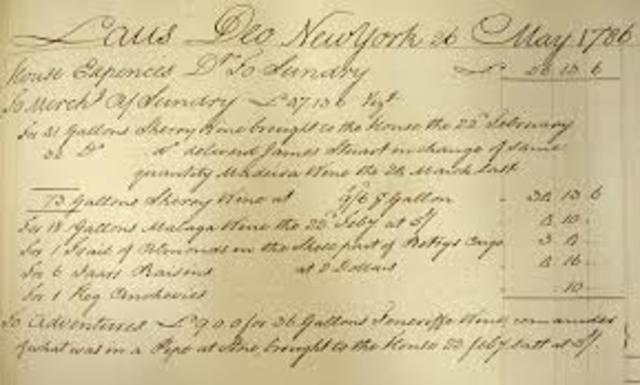 Laus Deo New York 26 May 1786
House Expences Dr To Sundry 13 6
To Merchd Of Sundry Vizt
For Gallons Sherry Wine brought to the House the 22d February
Do delivered James Stuart in change of same
quantity Madeira Wine the March last
73 Gallons Sherry Wine at 9/6 Gallon 13 6
For 18 Gallons Malaga Wine the Feby at 5/ 10
For 1 of Almonds in the part of Betseys 3
For 6 Jaars Raisins at 2 Dollars 16
For 1 Keg Anchovies 10
To Adventures £9 0 0 for 36 Gallons Teneriffe Wine, remainder
of what was in a Pipe at brought to the House 22 Feby last at 5/.